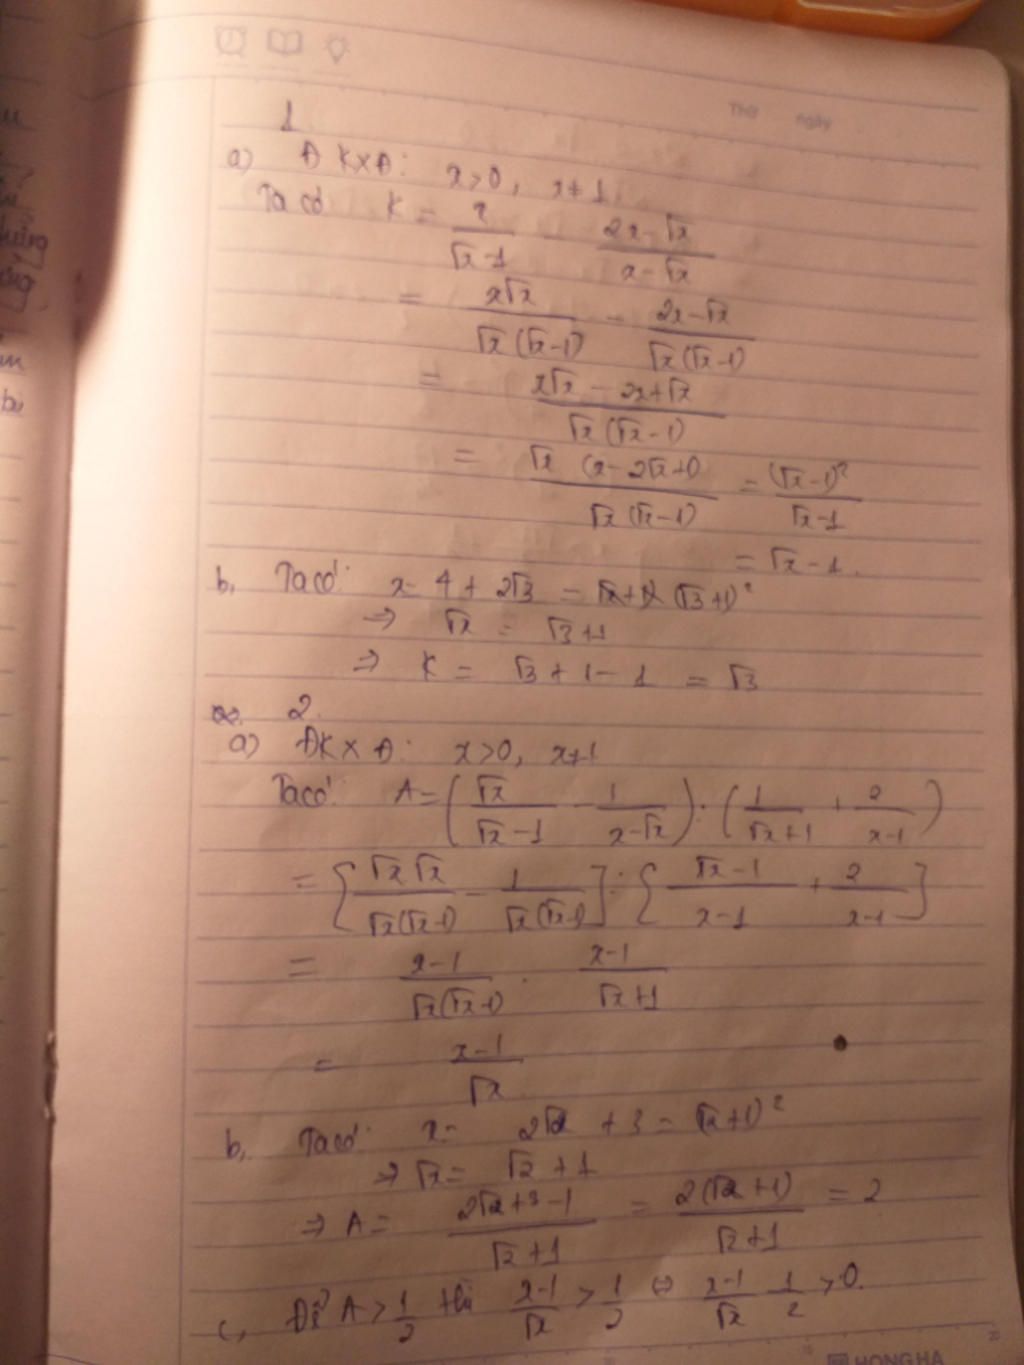 Thứ ngày
1.
a) ĐKXĐ: x>0, x≠1.
Ta có K = x/(√x-1) - (2x-√x)/(x-√x)
= x√x/(√x(√x-1)) - (2x-√x)/(√x(√x-1))
= (x√x - 2x+√x)/(√x(√x-1))
= √x (x-2√x+1)/(√x(√x-1)) = (√x-1)²/(√x-1)
= √x-1.
b, Ta có: x= 4 + 2√3 = (√3+1)²
=> √x = √3+1
=> K = √3+1-1 = √3
2.
a) ĐKXĐ: x>0, x≠1
Ta có: A= (√x/(√x-1) - 1/(x-√x)) : (1/(√x+1) + 2/(x-1))
= [√x√x/(√x(√x-1)) - 1/(√x(√x-1))] : [(√x-1)/(x-1) + 2/(x-1)]
= (x-1)/(√x(√x-1)) . (x-1)/(√x+1)
= (x-1)/√x.
b, Ta có: x= 2√2 + 3 = (√2+1)²
=> √x = √2+1
=> A= (2√2+3-1)/(√2+1) = 2(√2+1)/(√2+1) = 2
c, Để A>1/2 thì (x-1)/√x > 1/2 ⇔ (x-1)/√x - 1/2 >0.
HONG HA